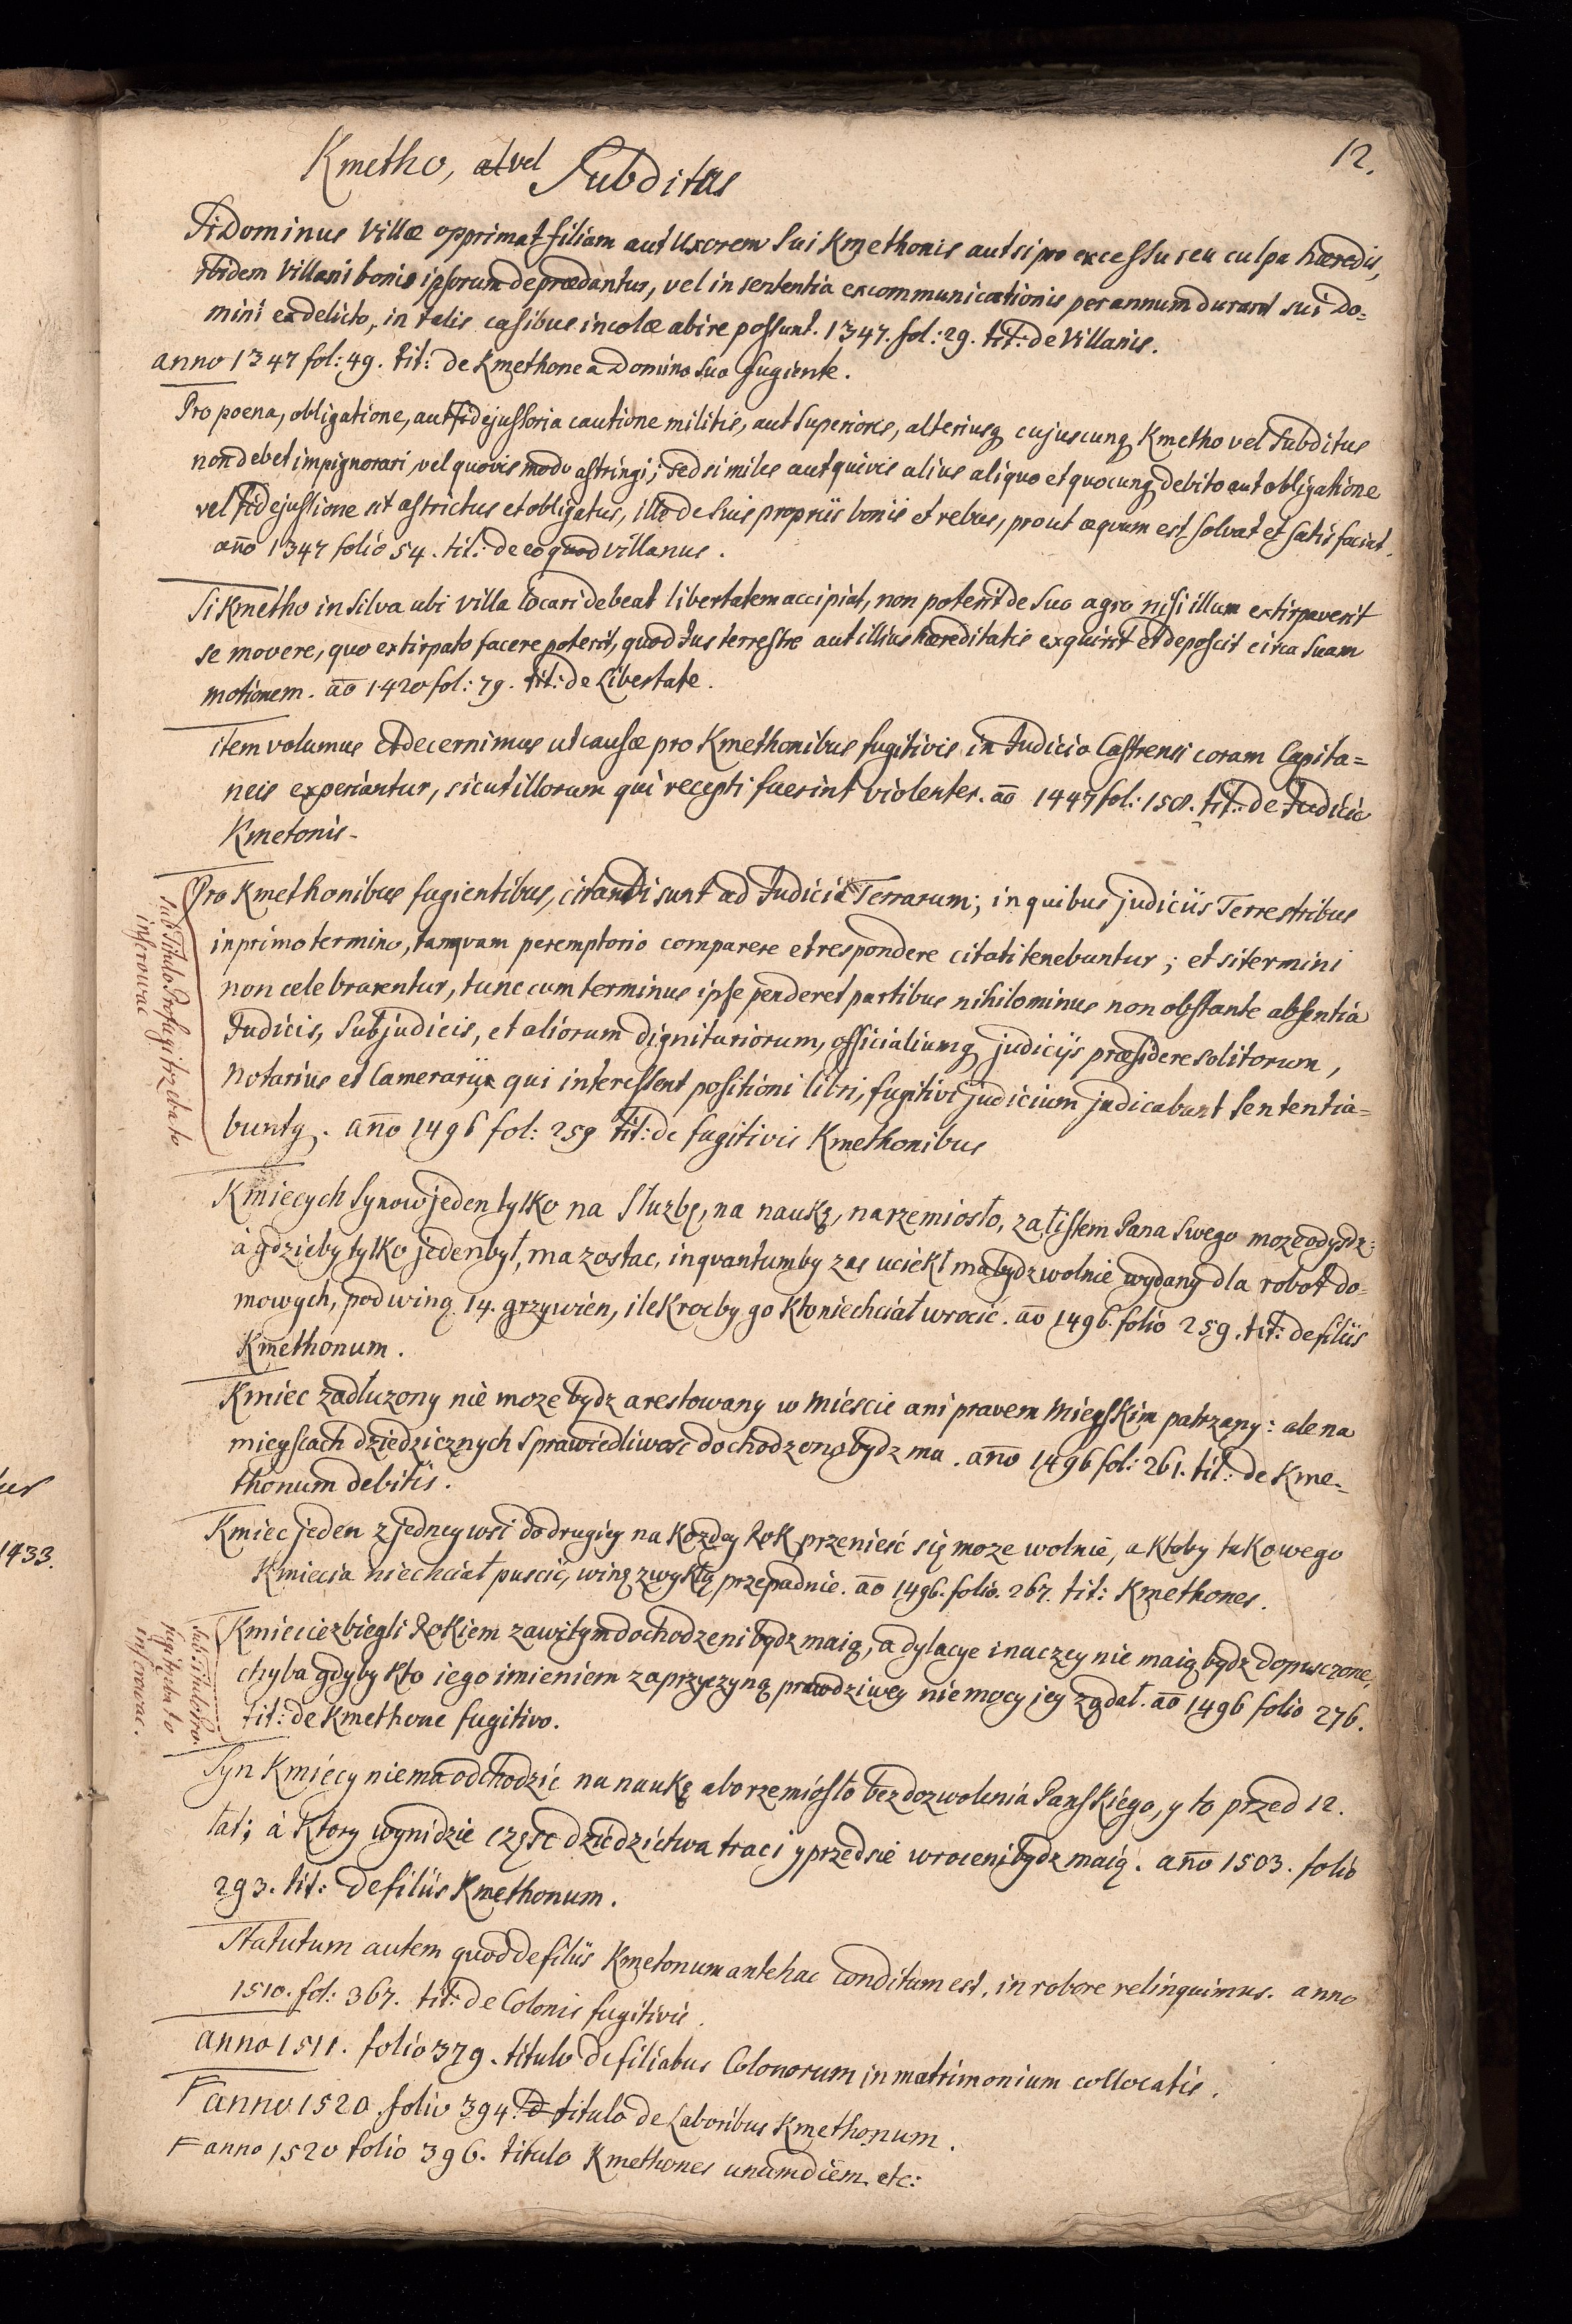 12.
Kmetho, vel Subditus
Si Dominus Villæ opprimat filiam aut Uxorem Sui Kmethonis aut si pro excessu seu culpa hæredis,
ibidem Villani bonis ipsorum deprædantur, vel in sententia excommunicationis per annum durant sui Do=
mini ex delicto, in talis casibus incolæ abire possunt. 1347. fol: 29. tit: de Villanis.
anno 1347 fol: 49. tit: de Kmethone a Domino suo fugiente.
Pro poena, obligatione, aut fidejussoria cautione militis, aut Superioris, alteriusq cujuscunq Kmetho vel Subditus
non debet impignorari vel quovis modo astringi; sed si miles aut quivis alius aliquo et quocunq debito aut obligatione
vel fidejussione sit astrictus et obligatus, ille de Suis propriis bonis et rebus, prout æquum est solvat et satisfaciat.
año 1347 folio 54. tit: de eo quod villanus.
Si Kmetho in Silva ubi villa locari debeat libertatem accipiat, non poterit de Suo agro nisi illum extirpaverit
se movere, quo extirpato facere poterit, quod Jus terrestre aut illius hæreditatis exquirit et deposcit circa Suam
motionem. ao 1420 fol: 79. tit: de Libertate.
item volumus et decernimus ut causæ pro Kmethonibus fugitivis in Judicio Castrensi coram Capita=
neis experiantur, sicut illorum qui recepti fuerint violenter. ao 1447 fol: 158. tit: de Judicio
Kmetonis.
Pro Kmethonibus fugientibus, citandi sunt ad Judicia Terrarum; in quibus judiciis Terrestribus
in primo termino, tamquam peremptorio comparere et respondere citati tenebuntur; et si termini
non celebrarentur, tunc cum terminus ipse penderet partibus nihilominus non obstante absentia
Judicis, Subjudicis, et aliorum dignitariorum, officialiumq judicijs præsidere solitorum,
Notarius et Camerarij qui interessent positioni libri, fugitivi judicium judicabunt sententia=
buntq. año 1496 fol: 259 tit: de fugitivis Kmethonibus
sub Titulo Profugi trzeba to
inserowac
Kmiecych Synow jeden tylko na Służbę, na naukę, na rzemiosło, za listem Pana Swego moze odysdz;
à gdzieby tylko jeden był, ma zostac, inquantum by zas uciekł ma bydz wolnie wydany dla robot do=
mowych, pod winą 14. grzywien, ilekrocby go kto niechciał wrocić. ao 1496. folio 259. tit: de filiis
Kmethonum.
Kmiec zadłuzony nie moze bydz arestowany w Miescie ani prawem Mieyskim patrzany: ale na
mieyscach dziedzicznych Sprawiedliwosc dochodzono bydz ma. año 1496 fol: 261. tit: de Kme=
thonum debitis.
Kmiec jeden z jedney wsi do drugiey na kozdey Rok przenieść się moze wolnie, a ktoby takowego
Kmiecia niechciał puscić, winę zwykłą przepadnie. ao 1496. folio. 267. tit: Kmethones.
Kmiecie zbiegli Rokiem zawitym dochodzeni bydz maią, a dylacye inaczey nie maią bydz dopusczone,
chyba gdyby kto iego imieniem za przyczyną prawdziwey niemocy jey ządał. ao 1496 folio 276.
tit: de Kmethone fugitivo.
sub titulo Pro-
fugi trzeba to
inserowac.
Syn Kmiecy nie ma odchodzic na naukę abo rzemiosło bez dozwolenia Panskiego, y to przed 12.
lat; à ktory wynidzie część dziedzictwa traci y przedsie wroceni bydz maią. año 1503. folio
293. tit: de filiis Kmethonum.
Statutum autem quod de filiis Kmetonum antehac conditum est, in robore relinquimus. anno
1510. fol: 367. tit: de Colonis fugitivis.
anno 1511. folio 379. titulo de filiabus Colonorum in matrimonium collocatis.
anno 1520. folio 394. titulo de Laboribus Kmethonum.
anno 1520 folio 396. titulo Kmethones unam diem etc:
1433.